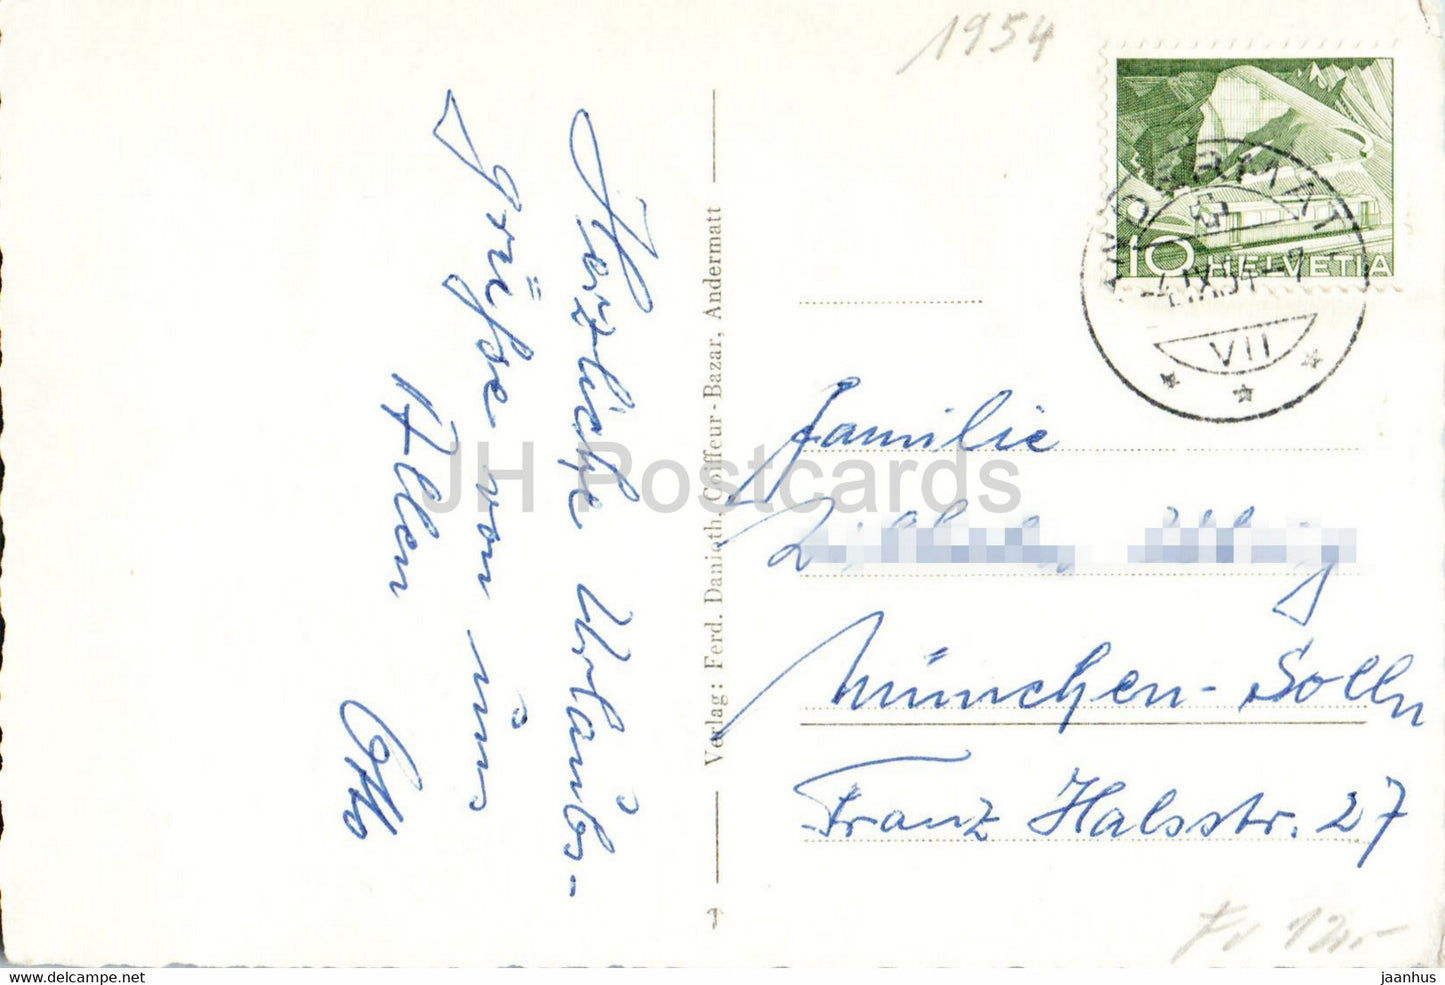 1954
Herzliche Urlaubs-
grüße von uns
Allen
Otto
Verlag: Ferd. Danioth, Coiffeur-Bazar, Andermatt
10 HELVETIA
ANDERMATT
IX.54
VII
Familie
München-Solln
Franz Halsstr. 27
Fr 12.-
JH Postcards
www.delcampe.net
jaanhus